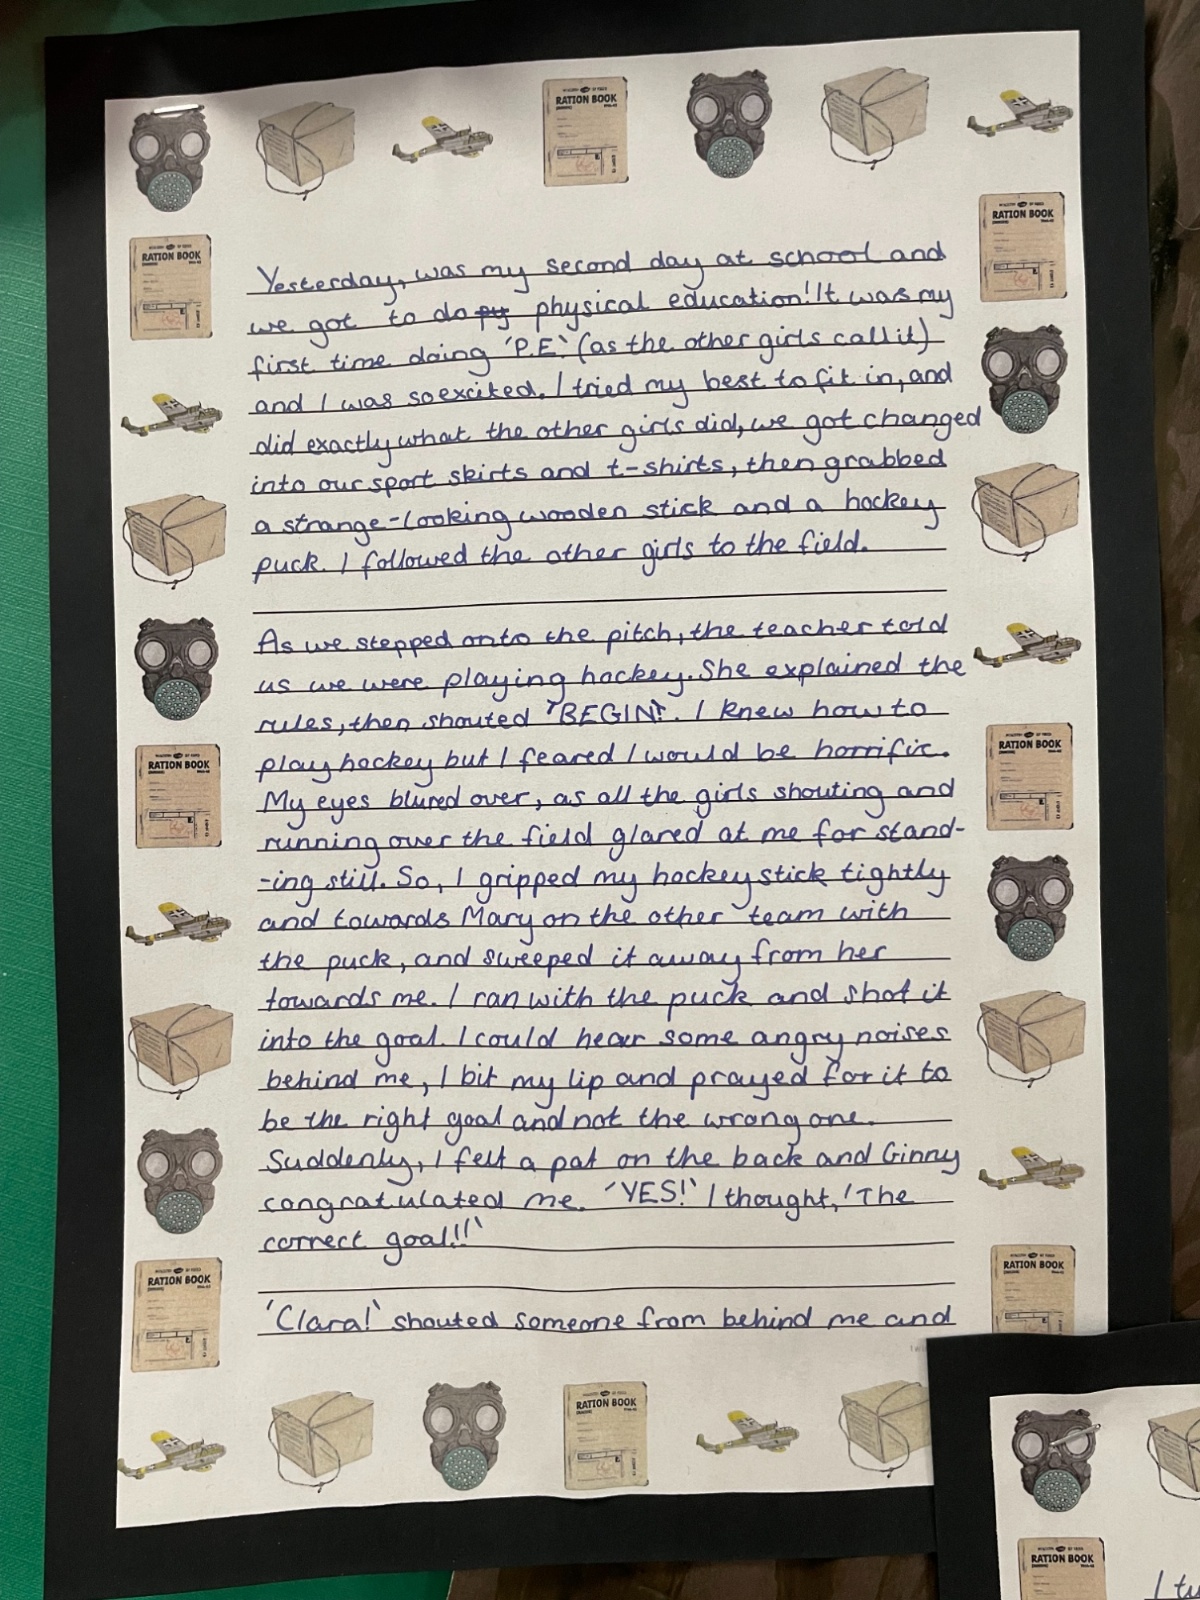 RATION BOOK
RATION BOOK
RATION BOOK
RATION BOOK
Yesterday, was my second day at school and
we got to do py physical education! It was my
first time doing 'P.E.' (as the other girls call it)
and I was so excited. I tried my best to fit in, and
did exactly what the other girls did, we got changed
into our sport skirts and t-shirts, then grabbed
a strange-looking wooden stick and a hockey
puck. I followed the other girls to the field.
As we stepped onto the pitch, the teacher told
us we were playing hockey. She explained the
rules, then shouted 'BEGIN!'. I knew how to
play hockey but I feared I would be horrific.
My eyes blured over, as all the girls shouting and
running over the field glared at me for stand-
-ing still. So, I gripped my hockey stick tightly
and towards Mary on the other team with
the puck, and sweeped it away from her
towards me. I ran with the puck and shot it
into the goal. I could hear some angry noises
behind me, I bit my lip and prayed for it to
be the right goal and not the wrong one.
Suddenly, I felt a pat on the back and Ginny
congratulated me. 'YES!' I thought, 'The
correct goal!!'
'Clara!' shouted someone from behind me and
RATION BOOK
RATION BOOK
RATION BOOK
RATION BOOK
RATION BOOK
RATION BOOK